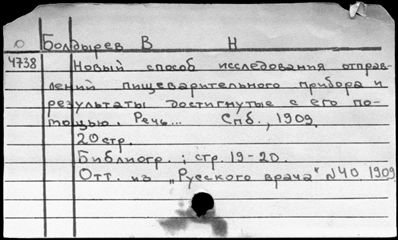 Болдырев В Н
4738 Новый способ исследования отправ-
лений пищеварительного прибора и
результаты достигнутые с его по-
мощью. Речь... Спб., 1909.
20 стр.
Библиогр.: стр. 19-20.
Отт. из „Русского врача" №40 1909